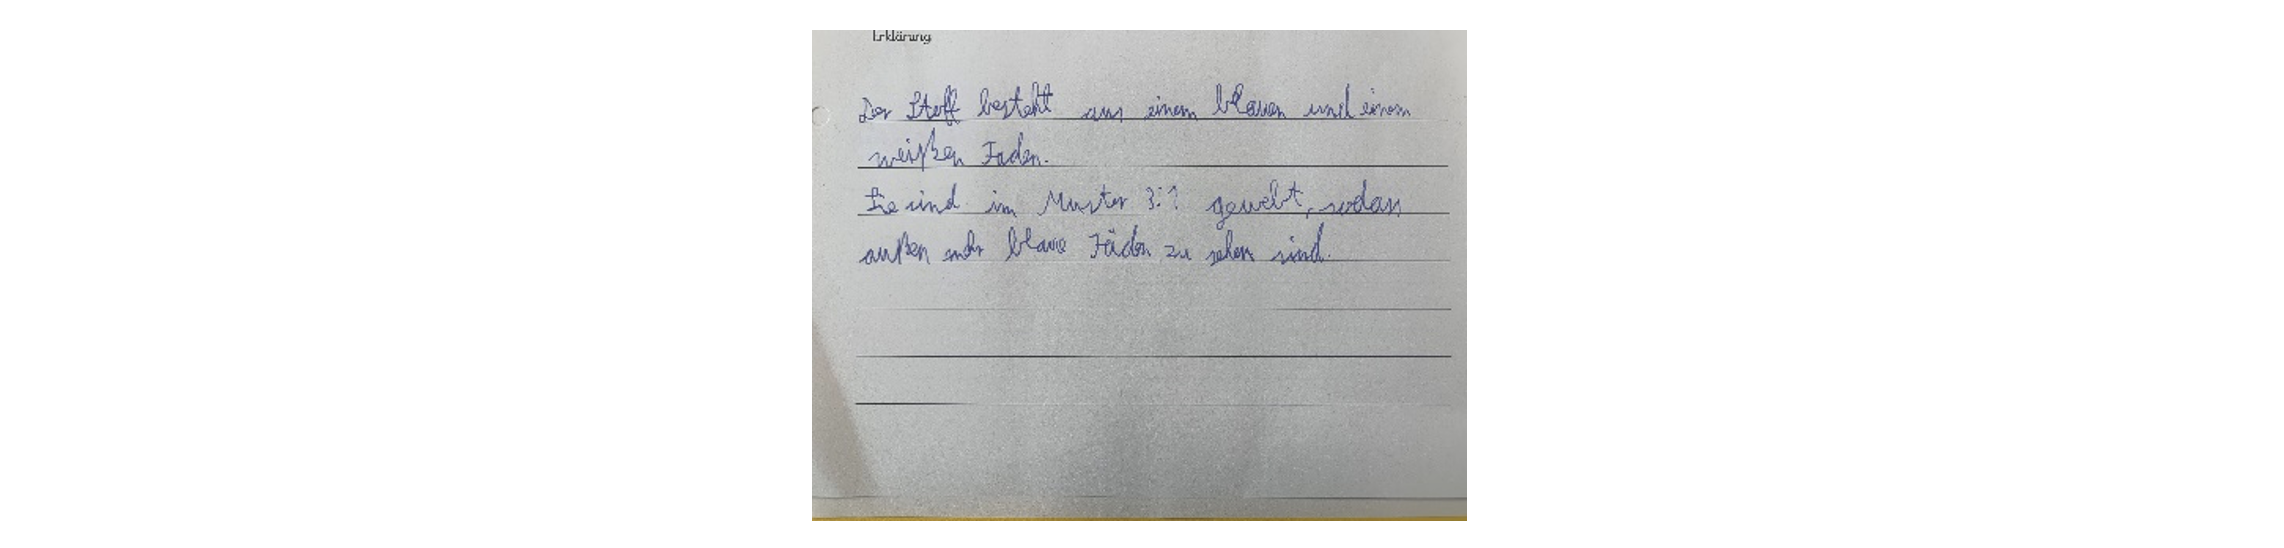 Erklärung
Der Stoff besteht aus einem blauen und einem
weißen Faden.
Sie sind im Muster 3:1 gewebt, sodass
außen mehr blaue Fäden zu sehen sind.